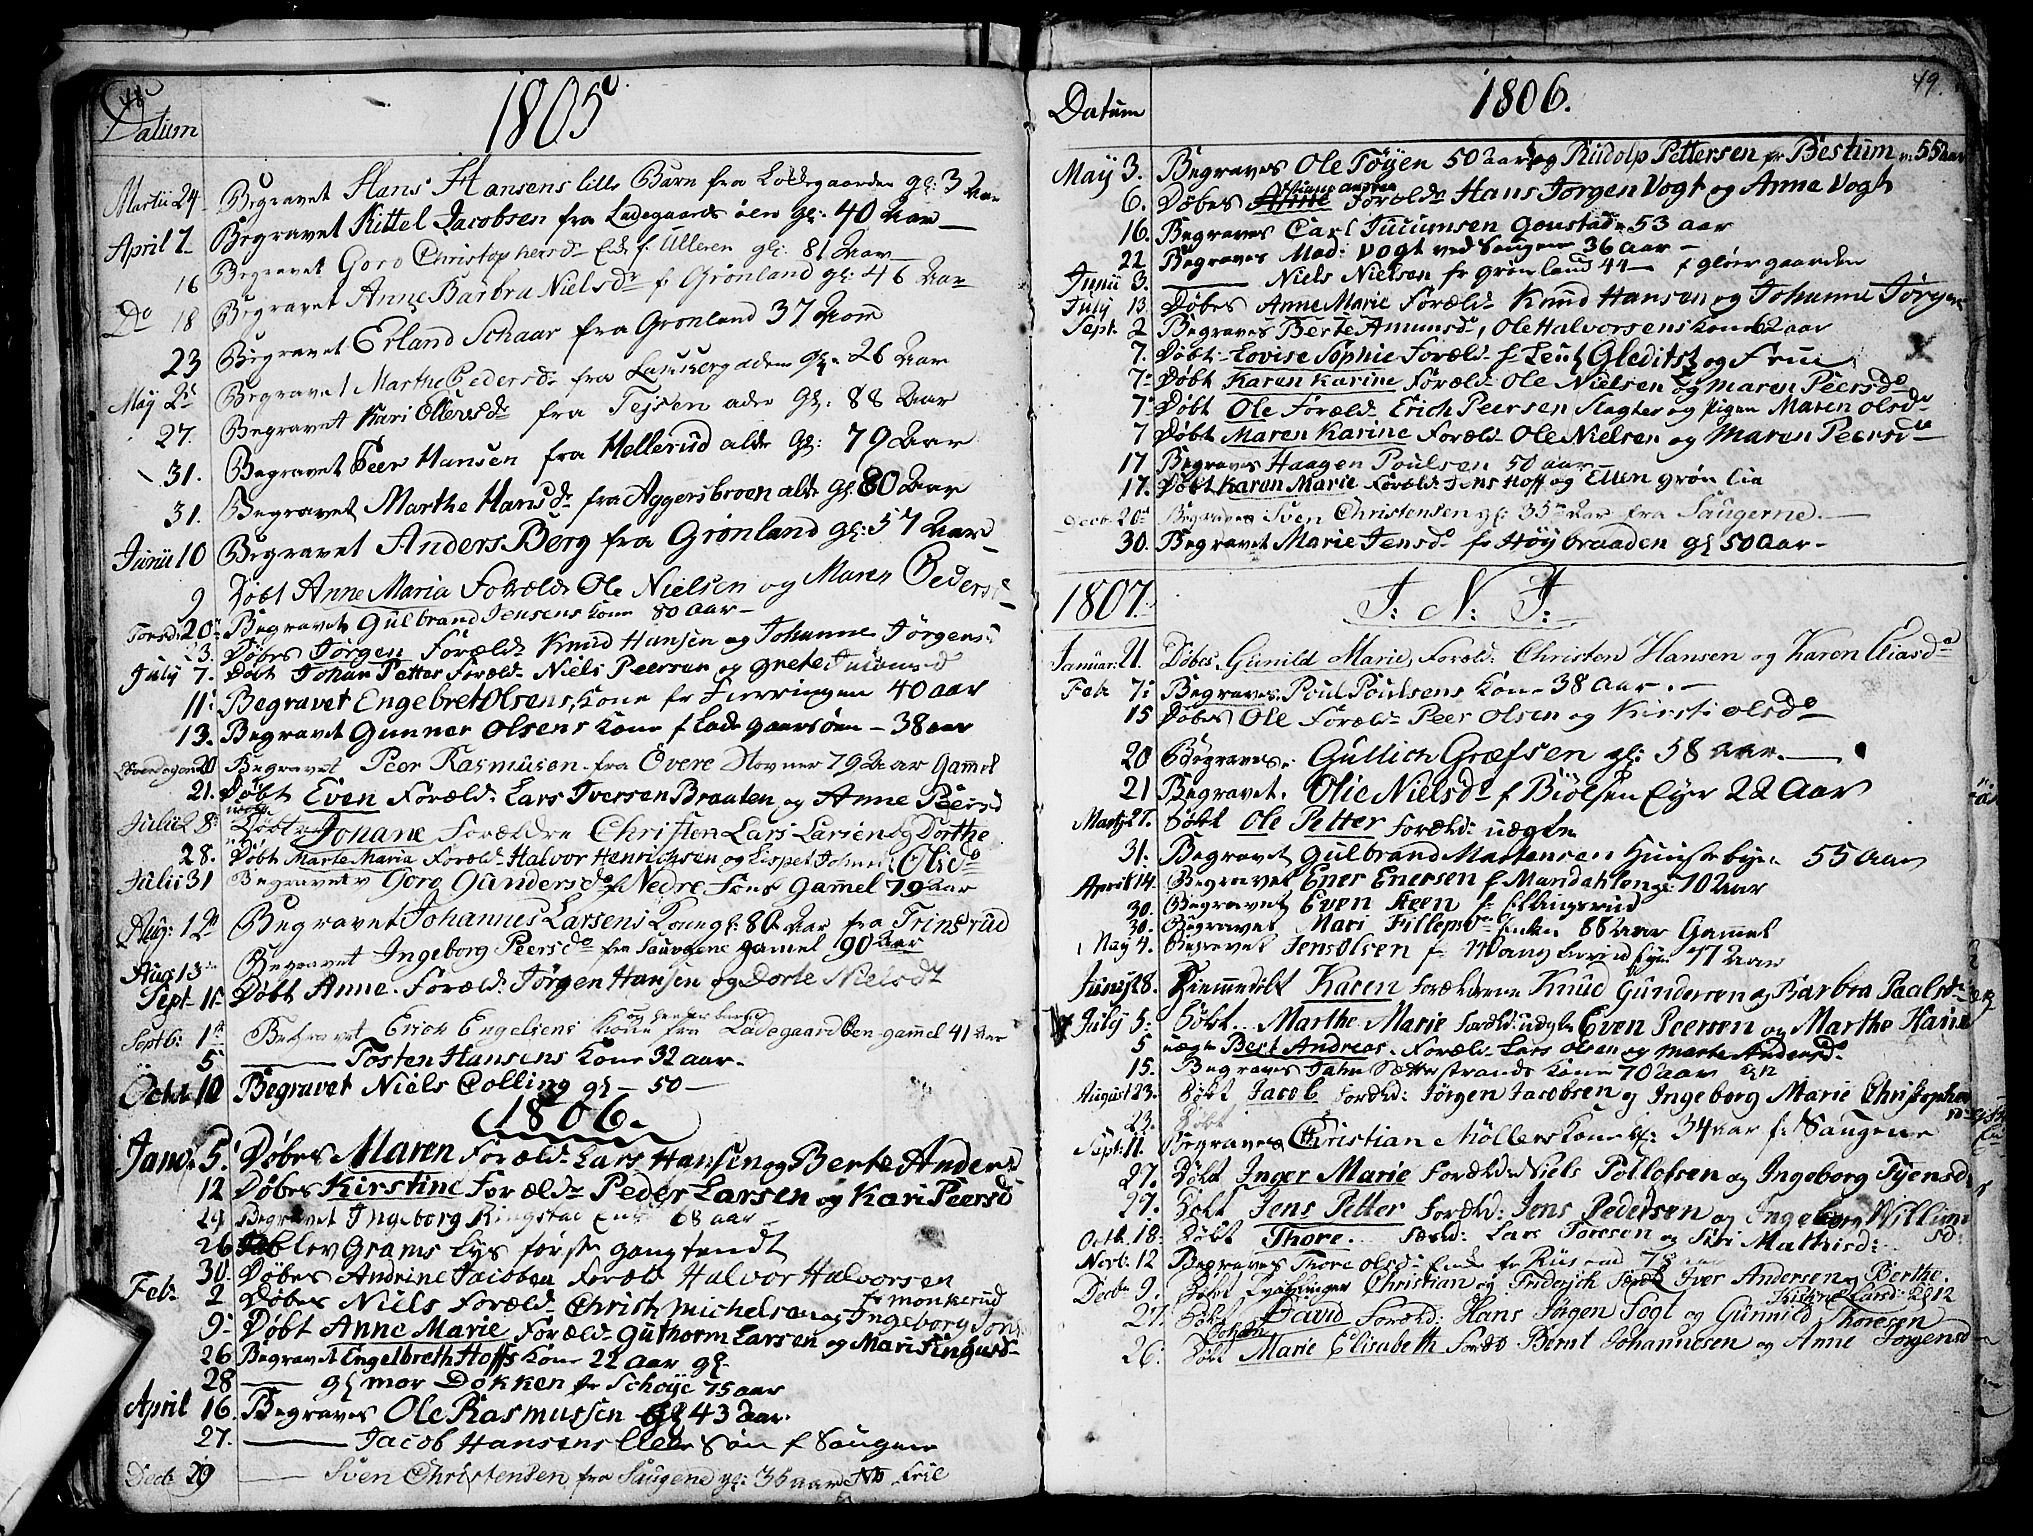 48
Datum
1805
Martii 24 Begravet Hans Hansens lille Barn fra Ladegaarden gl: 3 Aar
April 7 Begravet Kittel Jacobsen fra Ladegaards öen gl: 40 Aar
16 Begravet Goro Christophersdr Enke f. Ulleren gl: 81 Aar
Do 18 Begravet Anne Barbra Nielsdr f. Grönland gl: 46 Aar
23 Begravet Erland Schaar fra Grönland 37 Aar
May 25 Begravet Marthe Pedersdr fra gaden gl. 26 Aar
27. Begravet Kari Ollersdr fra Tejsen gl: 88 Aar
31. Begravet Peer Hansen fra Hellerud alde gl: 79 Aar
31. Begravet Marthe Hansdr fra Aggersbroen alde gl: 80 Aar
Junii 10 Begravet Anders Berg fra Grönland gl: 57 Aar
9 Döbt Anne Maria Foreldr Ole Nielsen og Maren Peders
20 Begravet Gulbrand Jensens kone 80 aar
23 Döbes Jörgen Foreldr Knud Hansen og Johanne Jörgens:
July 7. Döbt Johan Petter Foreld. Niels Peersen og Grete
11 Begravet Engebret Olsens, kone fr Pierringen 40 aar
13. Begravet Gunner Olsens Kone f Lade gaarsöen - 38 aar
20 Begravet Peer Rasmusen fra Övere Stovner 79 Aar Gammel
21. Döbt Even Foreld: Lars Iversen Braaten og Anne Peersd
Julii 28 Döbt Johane Foreldre Christen Lars Larsen og Dorthe
28. Döbt Marte Maria Foreld. Halvor Henrichsen og Lispet Olsdr
Julii 31 Begravet Gorg Gundersd f. Nedre Fons Gammel 79 aar
Aug: 12 Begravet Johannus Larsens Kone gl: 80 Aar fra Trinsrud
Aug 13 Begravet Ingeborg Peersdr fra Saugene gamel 90 Aar
Sept. 11 Döbt Anne. Foreld: Jörgen Hansen og Dorte Nielsdt
Septb: 1 Begravet Erich Engelsens Kone fra Ladegaardöen gammel 41 aar
5 — Tosten Hansens Kone 32 aar.
Octob 10 Begravet Niels Colling gl - 50 -
1806.
Janv: 5. Döbes Maren Foreld. Lars Hansen og Berte Anders
12 Döbes Kirstine Foreldr Peder Larsen og Kari Peersd
24 Begravet Ingeborg Ringstad Enke 68 aar
26 blev Grams Lys förste gang tendt
30 Döbes Andrine Jacobea Foreld Halvor Halvorsen
Feb. 2 Döbes Niels Foreld. Christ Michelsen og Ingeborg
fr monkerud
9. Döbt Anne Marie Foreld. Guthorm Larsen og Mari
26 Begravet Engelbreth Hoffs Kone 22 aar gl.
28 — gl mor Dokken fr Schöye 75 aar
April 16. Begraves Ole Rasmussen gl 43 aar.
27. — Jacob Hansens lille Sön f Saugene
Decb 29 — Sven Christensen fra Saugene gl: 35 aar
49.
Datum
1806.
May 3. Begraves Ole Töyen 50 aar og Rudolp Pettersen fr Bestum 55 aar
6. Döbes Foreldr Hans Jörgen Vogt og Anne Vogt
16. Begraves Carl Gonstad 53 aar
22 Begraves Mad: Vogt ved Saugene 36 aar -
Junii 3. — Niels Nielsen fr grönland 44 — f glöer gaarden
July 13 Döbes Anne Marie Foreldr Knud Hansen og Johanne Jörgens
Sept: 2 Begraves Berte Amunsd, Ole Halvorsens kone 62 aar
7. Döbt Lovise Sophie Foreld. f Leut Gleditsz og Frue
7. Döbt Karen Karine Foreld. Ole Nielsen og Maren Peersdr
7 Döbt Ole Foreld. Erich Peersen Slagter og Pigen Maren Olsdr
7 Döbt Maren Karine Foreld. Ole Nielsen og Maren Peersdr
17 Begraves Haagen Poulsen 50 aar
17. Döbt Karen Marie Foreldr Jens Hoff og Ellen grön lia
Decb 20 Begraves Sven Christensen gl: 35 Aar fra Saugerne.
30. Begravet Marie Jensdr fr Höybraaden gl 50 Aar -
1807. I: N: I:
Januar: 21. Döbes Gunild Marie, Foreld: Christen Hansen og Karen Eliasdr
Feb. 7: Begraves. Poul Poulsens Kone 38 Aar. -
15 Döbes Ole Foreldr Peer Olsen og Kirsti Olsdr
20 Begraves. Gullich Græfsen gl: 58 aar.
21 Begravet. Olie Nielsdr f Biölsen Eyer 22 Aar
Martz 27. Döbt Ole Petter Foreld: uægte
31: Begravet Gulbrand Martensen 55 Aar
April 14. Begravet Ener Enersen f Mandahlen gl: 10 Aar
30. Begravet Even Steen fr Ellingsrud
30. Begravet Mari Fillepsdr Enke 88 aar Gammel
May 4. Begravet Jens Olsen f 77 Aar
Junij 28. Hjemmedöbt Karen Foreldrene Knud Gundersen og Barbra Paalsdr
July 5: Döbt. Marthe Marie Foreld: uægte Even Peersen og Marthe
5 uægte Bert Andreas. Foreld. Lars Olsen og Marte Andersdr
15. Begraves strands Kone 70 aar
August 23. Döbt Jacob Foreld: Jörgen Jacobsen og Ingeborg Marie Christophers
23. Döbt
Sept: 11. Begraves Christian Möllers Kone gl: 34 aar f: Saugene
27. Döbt Inger Marie Foreld. Niels Tollofsen og Ingeborg
27. Döbt Jens Petter Foreld: Jens Pedersen og Ingeborg
Octb. 18: Döbt Thore. Foreld: Lars Toresen og Siri Mathisd:
Novb: 12 Begraves Thore Olsdr Enke fr
Decbr 9. Döbt Tvillinger Christian og Friderich Foreld Iver Andersen og Berthe
27. Döbt David Foreld: Hans Jörgen Vogt og Gunnild Thoresen
26. Döbt Marie Elisabeth Foreld Bernt Johannesen og Anne Jörgensd